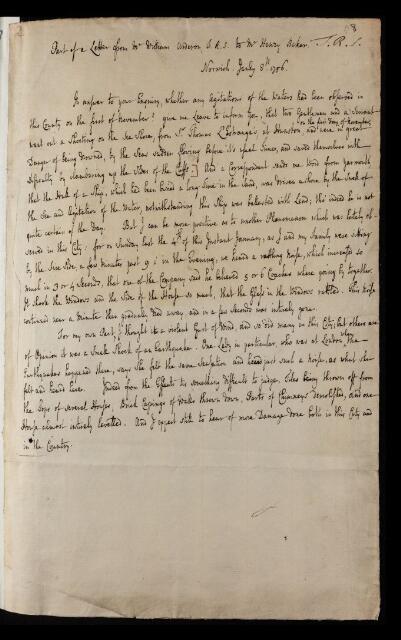 8
Part of a Letter from Mr William Arderon F.R.S. to Mr Henry Baker F.R.S.
Norwich Jan'ry 8th 1756.
In answer to your Enquiry, whether any Agitations of the Waters had been observed in
this County on the first of November? give me Leave to inform You, that two Gentlemen and a Servant
on the first Day of November,
went out a Shooting on the Sea Shore, from Sr Thomas L'Estrange's at Hunston, and were in great
Danger of being Drowned, by the Sea's sudden flowing before it's usual Time, and saved themselves with
difficulty by clambering up the Sides of the Cliffs. And a Correspondent sends me Word from Yarmouth
that the Hulk of a Ship, which had been buried a long time in the Sand, was driven a shore by the Swell of
the Sea and Agitation of the Water, notwithstanding this Ship was balasted with Lead; this indeed he is not
quite certain of the Day. But I can be more positive as to another Phænomenon which was lately ob-
served in this City: for on Sunday last the 4th of this Instant January, as I and my Family were sitting
by the fire Side, a few minutes past 9 in the Evening, we heard a rushing Noise, which increased so
much in 3 or 4 Seconds, that one of the Company said he believed 5 or 6 Coaches where going by together.
It shook the Windows and the Side of the House so much, that the Glass in the Windows rattled. This Noise
continued near a Minute then gradually died away and in a few Seconds was intirely gone.
For my own Part, I thought it a violent Gust of Wind, and so did many in this City; but others are
of Opinion it was a Small Shock of an Earthquake. One Lady in particular, who was at London when the
Earthquakes happened there, says She felt the same Sensation and heard just such a Noise, as what she
felt and heard here. Indeed from the Effects tis something difficult to judge, Tiles being thrown off from
the Tops of several Houses, Brick Copings of Walls thrown down, Parts of Chimneys demolished, and one
House almost intirely levelled. And I expect still to hear of more Damage done both in this City and
in the Country.